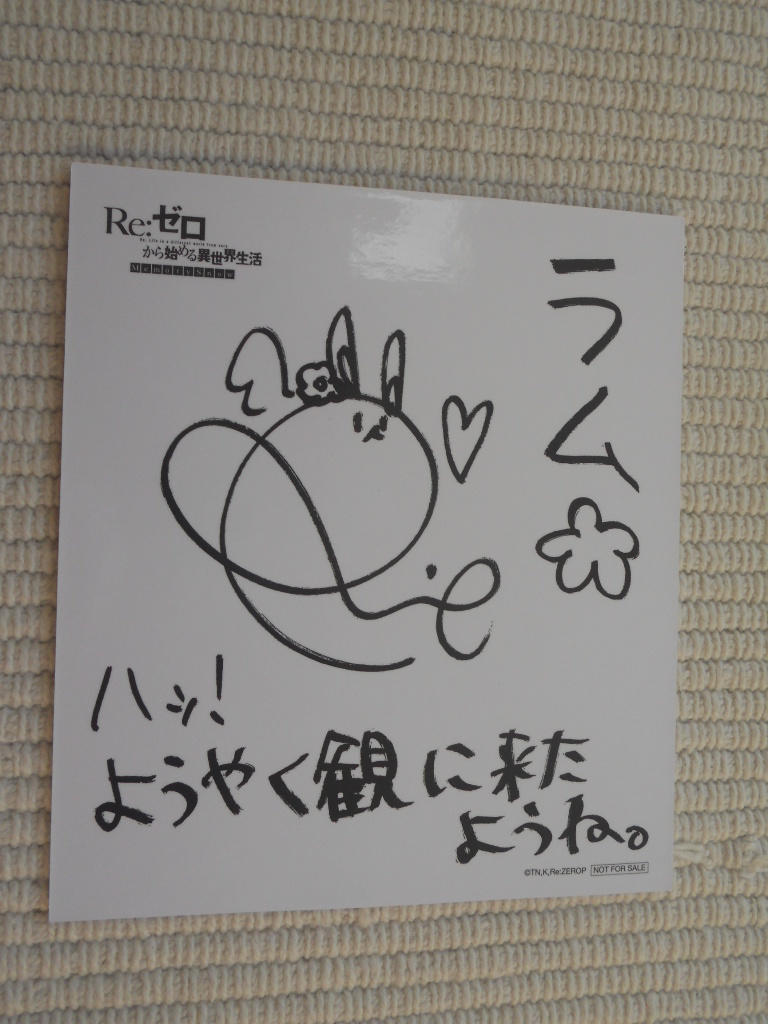 Re:ゼロ
Re: Life in a different world from zero
から始める異世界生活
Memory Snow
ラム
ハッ!
ようやく観に来た
ようね。
©TN,K,Re:ZEROP NOT FOR SALE